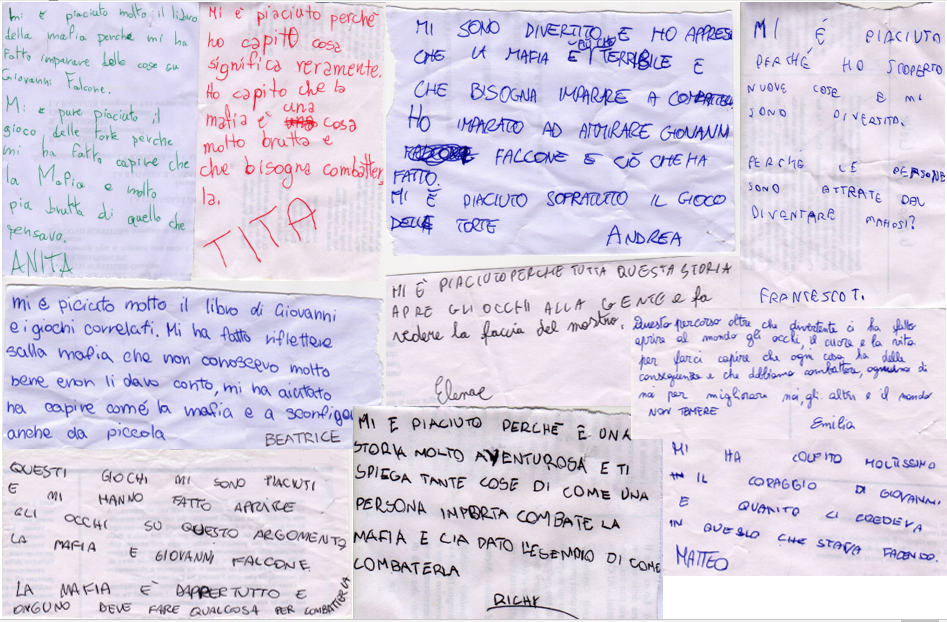 mi è piaciuto molto il libro
della mafia perche mi ha
fatto imparare delle cose su
Giovanni Falcone.
Mi è pure piaciuto il
gioco delle torte perche
mi ha fatto capire che
la Mafia e molto
più brutta di quello che
pensavo.
ANITA
Mi è piaciuto perché
ho capito cosa
significa veramente.
Ho capito che la
mafia è una cosa
molto brutta e
che bisogna combatter
la.
TITA
MI SONO DIVERTITO E HO APPRESO
CHE LA MAFIA È TERRIBILE E
CHE BISOGNA IMPARARE A COMBATTERLA
HO IMPARATO AD AMMIRARE GIOVANNI
FALCONE E CIÒ CHE HA
FATTO.
MI È PIACIUTO SOPRATUTTO IL GIOCO
DELLE TORTE
ANDREA
MI É PIACIUTO
PERCHÉ HO SCOPERTO
NUOVE COSE E MI
SONO DIVERTITO.
PERCHÉ LE PERSONE
SONO ATTRATE DAL
DIVENTARE MAFIOSI?
FRANCESCO T.
mi è piciuto molto il libro di Giovanni
e i giochi correlati. Mi ha fatto riflettere
sulla mafia che non conoscevo molto
bene e non li davo conto, mi ha aiutato
ha capire com'é la mafia e a sconfigere
anche da piccola
BEATRICE
MI È PIACIUTO PERCHE TUTTA QUESTA STORIA
APRE GLI OCCHI ALLA GENTE e fa
vedere la faccia del mostro.
Elenae
Questo percorso oltre che divertente ci ha fatto
aprire al mondo gli occhi, il cuore e la vita
per farci capire che ogni cosa ha delle
conseguenze e che dobbiamo combattere, ognuno di
noi per migliorare noi, gli altri e il mondo
NON TEMERE
Emilia
QUESTI GIOCHI MI SONO PIACIUTI
E MI HANNO FATTO APRIRE
GLI OCCHI SU QUESTO ARGOMENTO
LA MAFIA E GIOVANNI FALCONE.
LA MAFIA E' DAPPERTUTTO E
ONGUNO DEVE FARE QUALCOSA PER COMBATTERLA
MI È PIACIUTO PERCHÉ È UNA
STORIA MOLTO AVVENTUROSA E TI
SPIEGA TANTE COSE DI COME UNA
PERSONA IMPORTA COMBATE LA
MAFIA E CIA DATO L'ESEMPIO DI COME
COMBATERLA
RICHY
MI HA COLPITO MOLTISSIMO
IL CORAGGIO DI GIOVANNI
E QUANTO CI CREDEVA
IN QUELLO CHE STAVA FACENDO.
MATTEO